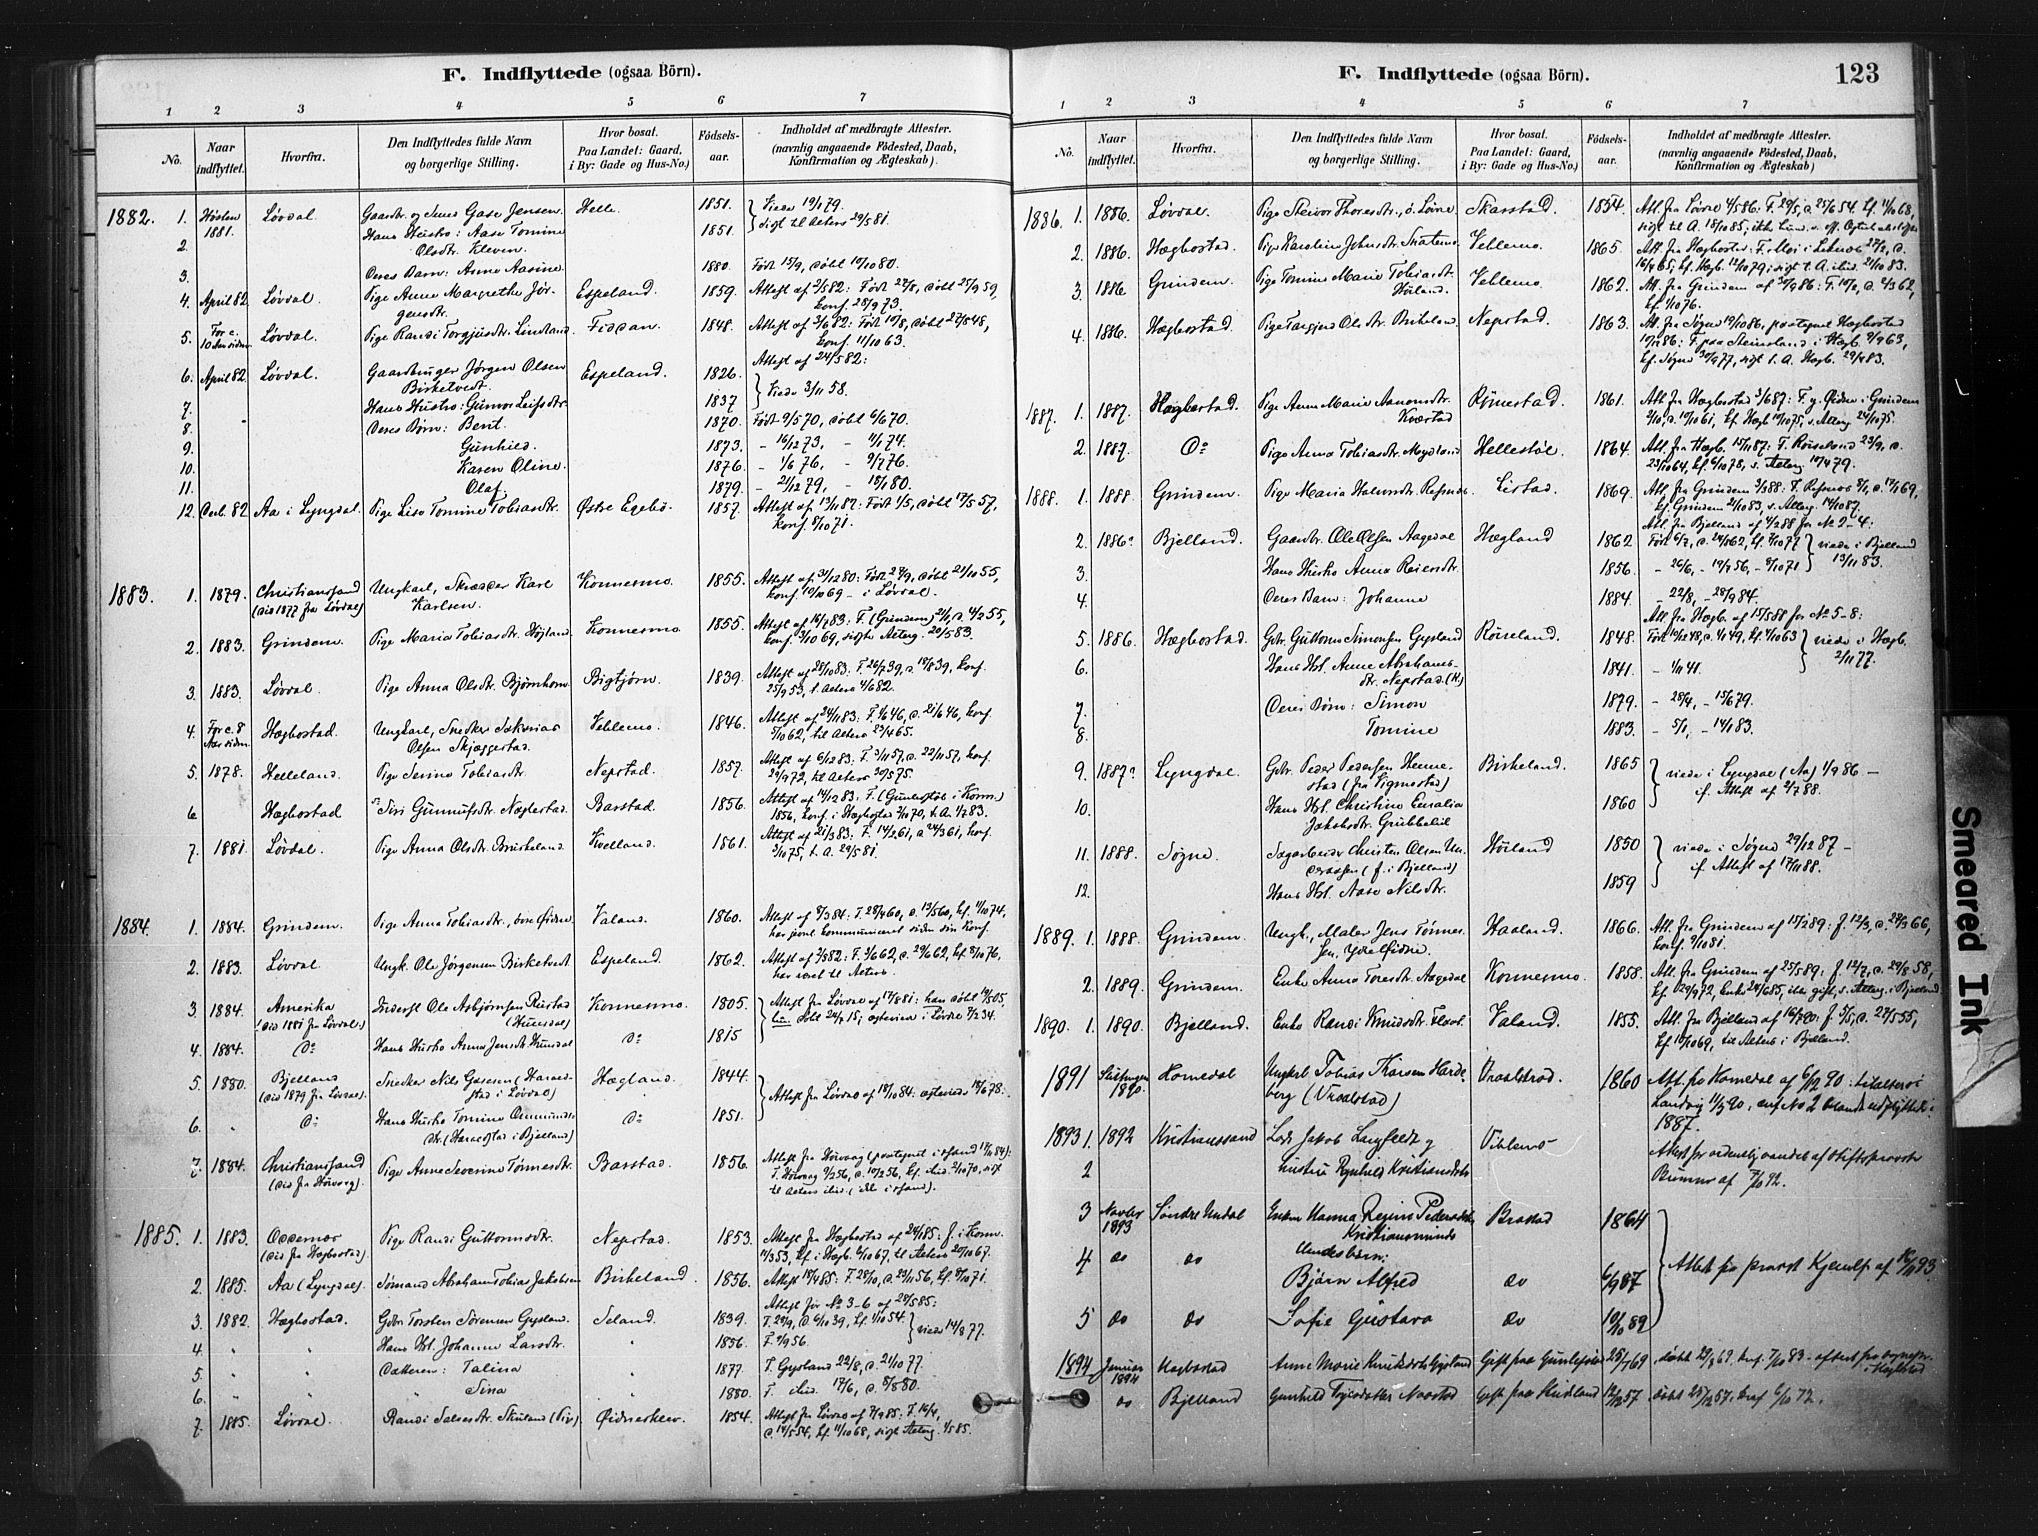 F. Indflyttede (ogsaa Börn).
1 2 3 4 5 6 7
No.
Naar indflyttet.
Hvorfra.
Den Indflyttedes fulde Navn og borgerlige Stilling.
Hvor bosat. Paa Landet: Gaard, i By: Gade og Hus-No.)
Födsels-aar.
Indholdet af medbragte Attester. (navnlig angaaende Födested, Daab, Konfirmation og Ægteskab).
1882. 1. Høsten 1881. Løvdal. Gaardbr. og Smed Gase Jensen Helle. 1851. Viede 19/1 79.
2. Hans Hustro: Aase Tomine Olsdtr. Kleven. 1851. sigt til Alters 29/5 81.
3. Deres Barn: Anne Aasine 1880. Født 15/9, døbt 10/10 80.
4. April 82. Løvdal. Pige Anne Margrethe Jörgensdtr. Espeland. 1859. Attest af 2/5 82: Født 22/8, døbt 25/9 59, konf. 28/9 73.
5. For c. 10 Aar siden. Løvdal. Pige Randi Torgjusdtr. Lindland. Fidjan. 1848. Attest af 3/6 82: Født 10/8, døbt 27/8 48, konf. 11/10 63.
6. April 82. Løvdal. Gaardbruger Jörgen Olsen Birketvedt. Espeland. 1826. Attest af 24/5 82: Viede 3/11 58.
7. Hans Hustro: Gunvor Leifsdtr. 1837
8. Deres Børn: Berit. 1870. Født 9/5 70, døbt 6/6 70.
9. Gunhild. 1873. – 16/12 73, – 4/1 74.
10. Karen Oline. 1876. – 1/6 76, – 9/7 76.
11. Olaf 1879. – 21/12 79, – 18/1 80.
12. Decb. 82 Aa i Lyngdal. Pige Lise Tomine Tobiasdtr. Østre Egebø. 1857. Attest af 13/11 82: Født 1/5, døbt 17/5 57, konf. 8/10 71.
1883. 1. 1879. Christianssand (did 1877 fra Løvdal) Ungkarl, Skrædder Karl Karlsen. Konnesmo. 1855. Attest af 31/12 80: Født 27/9, døbt 21/10 55, konf. 10/10 69 – i Løvdal.
2. 1883. Grindem. Pige Maria Tobiasdtr. Højland Konnesmo. 1855. Attest af 14/7 83: F. (Grindem) 21/1, d. 4/2 55, konf. 3/10 69, sigtes Alterg. 20/5 83.
3. 1883. Løvdal. Pige Anna Olsdtr. Bjørnhom Bigtjørn. 1839. Attest af 28/10 83: F. 26/7 39, d. 18/8 39, konf. 25/9 53, t. Alters 4/6 82.
4. For c. 8 Aar siden. Hægbostad. Ungkarl, Snedker Sakarias Olsen Skjeggestad. Veblemo. 1846. Attest af 24/11 83: F. 1/6 46, d. 21/6 46, konf. 5/10 62, til Alters 23/4 65.
5. 1878. Helleland. Pige Serine Tobiasdtr. Nepstad. 1857. Attest af 6/12 83: F. 3/11 57, d. 22/11 57, konf. 29/9 72, til Alters 30/5 75.
6 Hægbostad Siri Gunnufsdtr. Neglestad. Barstad. 1856. Attest af 14/12 83: F. (Gunlestøl i Konn.) 1856, konf. i Hægbostad 2/10 70, t. A. 1/7 83.
7. 1881. Løvdal. Pige Anna Olsdtr. Birkeland. Kvelland. 1861. Attest af 21/3 83: F. 14/2 61, d. 24/3 61, konf. 3/10 75, t. A. 29/5 81.
1884. 1. 1884. Grindem. Pige Anna Tobiasdtr., øvre Øidne Valand. 1860. Attest af 8/3 84: F. 28/4 60, d. 13/5 60, kf. 11/10 74, har jevnl. kommuniceret siden sin Konf.
2. 1883. Løvdal Ungk. Ole Jørgensen Birketvedt Espeland. 1862. Attest af 2/3 82: F. 3/6 62, d. 29/6 62, kf. 8/10 76, har været til Alters.
3. 1884. Amerika (did 1881 fra Løvdal.) Inderst Ole Asbjørnsen Rustad (Hunsdal) Konnesmo. 1805. Attest fra Løvdal af 17/8 81: han døbt 19/5 05, hun døbt 24/7 15; ægteviet i Løvdal 7/2 34.
4. 1884. Do Hans Hustro Anna Jensdtr. Hunsdal Do 1815
5. 1880. Bjelland (did 1879 fra Løvdal) Snedker Nils Gasesen (Haraldstad i Løvdal) Hægland. 1844. Attest fra Løvdal af 18/10 84: ægteviet 18/6 78.
6. Do Hans Hustro Tomine Ommundsdtr. (Haraldstad i Bjelland) Do 1851.
7. 1884. Christianssand (did fra Høivaag) Pige Anne Severine Tönnesdtr. Barstad. 1856. Attest fra Høivaag (paategnet i Xsand 17/11 84): F. Høivaag 9/2 56, d. 10/2 56, kf. ibid. 2/10 70, sigt til Alters ibid. (ikke i Xsand).
1885. 1. 1883. Oddernes (did fra Hægbostad). Pige Randi Guttormsdtr. Nepstad. 1853. Attest fra Hægbostad af 24/1 85: f. i Konn. 14/3 53, kf. i Hægb. 6/10 67, til Alters 20/10 67.
2. 1885. Aa (Lyngdal) Sømand Abraham Tobias Jakobsen Birkeland. 1856. Attest 18/4 85: F. 28/10, d. 23/11 56, kf. 8/10 71.
Attest for No 3–6 af 28/5 85:
3. 1882. Hægbostad. Gdbr. Torsten Sørensen Gysland. Seland. 1839. F. 29/9, d. 6/10 39, kf. 1/10 54. viede 14/8 77.
4. Hans Hst. Johanne Larsdtr. 1856. F. 9/9 56.
5. Datteren: Talina 1877. F. Gysland 22/8, d. 21/10 77.
6. Sina 1880. F. ibid. 17/6, d. 8/8 80.
7. 1885. Løvdal. Randi Salvesdtr. Skuland (Pige) Øidneskleiv. 1854. Attest fra Løvdal af 7/9 85: F. 16/4, d. 14/5 54, kf. 11/10 68, sigt Alterg. 4/5 85.
F. Indflyttede (ogsaa Börn). 123
1 2 3 4 5 6 7
No.
Naar indflyttet.
Hvorfra.
Den Indflyttedes fulde Navn og borgerlige Stilling.
Hvor bosat. Paa Landet: Gaard, i By: Gade og Hus-No.)
Födsels-aar.
Indholdet af medbragte Attester. (navnlig angaaende Födested, Daab, Konfirmation og Ægteskab)
1886. 1. 1886. Løvdal. Pige Steivor Thoresdtr., ö. Løvdal Skarstad. 1854. Att. fra Løvdal 4/5 86: F. 29/5, d. 25/6 54, kf. 11/10 68, sigt til A. 18/10 85,
2. 1886. Hægbostad. Pige Karoline Johnsdtr. Snartemo Veblemo. 1865. Att. fra Hægbostad: F. Moi i 27/2, d. 16/4 65, kf. Hægb. 12/10 79, sigt t. A. ibid. 21/10 83.
3. 1886 Grindem. Pige Tomine Marie Tobiasdtr. Høiland. Veblemo. 1862. Att. fra Grindem af 30/9 86: F. 10/2, d. 4/3 62, kf. 1/10 76.
4. 1886. Hægbostad. Pige Targjerd Olsdtr. Birkeland Nepstad. 1863. Att. fra Søgne 19/10 86, paategnet Hægbostad 17/11 86: F. paa Steinsland i Hægb. 9/9 63, kf. Søgne 30/9 77, sigt t. A. Hægb. 29/4 83.
1887. 1. 1887. Hægbostad. Pige Anne Marie Aanonsdtr. Kvæstad Römestad. 1861. Att. fra Hægbostad 3/6 87: F. y. Øidne i Grindem 2/10, d. 10/10 61, kf. Hægb. 10/10 75, s. Alterg. 24/10 75.
2. 1887. Do Pige Anna Tobiasdtr. Mydland Hellestøl. 1864. Att. fra Hægb. 15/11 87. F. Røiseland 23/9, d. 23/10 64, kf. 6/10 78, s. Alterg. 10/4 79.
1888. 1. 1888. Grindem. Pige Maria Halvorsdtr. Refsnes. Listad. 1869. Att. fra Grindem 3/3 88: F. Refsnes 8/1, d. 17/1 69, kf. Grindem 21/10 83, s. Alterg. 14/10 87.
Att. fra Bjelland af 4/2 88 for No 2–4:
2. 1886? Bjelland. Gaardbr. Ole Olsen Aagedal Hægland 1862 Født 6/7, d. 24/8 62, kf. 7/10 77 viede i Bjelland 13/11 83.
3. Hans Hustro Anna Reiersdtr. 1856. – 26/6, – 19/7 56, – 8/10 71
4. Deres Barn: Johanne 1884. – 22/8, – 28/9 84.
Att. fra Hægb. af 15/5 88 for No 5–8:
5. 1886. Hægbostad. Gbr. Guttorm Simonsen Gysland Røiseland. 1848. Født 19/12 48, d. 4/1 49, kf. 4/10 63 viede i Hægb. 2/11 77.
6. Hans Hst. Anne Abrahamsdtr. Nepstad. (K) 1841. – 1/11 41.
7. Deres Børn: Simon 1879. – 28/4, – 15/6 79.
8. Tomine 1883. – 5/1, – 14/1 83.
9. 1887? Lyngdal. Gbr. Peder Pedersen Hennestad (fra Tigmestad) Birkeland. 1865 viede i Lyngdal (Aa) 1/9 86 – if. Attest af 2/7 88.
10. Hans Hst. Christine Euralia Jakobsdtr. Grubbelid 1860
11. 1888. Søgne. Sagarbeider Christen Olsen Undersaasen (f. i Bjelland) Høiland 1850 viede i Søgne 29/12 87 – if. Attest af 17/11 88.
12. Hans Hst. Aase Nilsdtr. 1859
1889. 1. 1888. Grindem. Ungk., Maler Jens Tönnesen, Ydre Øidne. Haaland. 1866. Att. fra Grindem af 15/2 89: f. 12/3, d. 29/3 66, konf. 9/10 81.
2. 1889. Grindem. Enke Anna Toresdtr. Aagedal Konnesmo. 1858. Att. fra Grindem af 25/5 89: f. 12/7, d. 29/8 58, kf. 29/9 72, Enke 24/6 85, ikke gift, s. Alterg. i Bjelland
1890. 1. 1890. Bjelland. Enke Randi Knudsdtr. Valand. 1855. Att. fra Bjelland af 16/7 90: f. 5/5, d. 27/5 55, kf. 10/10 69, til Alters i Bjelland.
1891 1890. Homedal Ungkarl Tobias Karsen Hardeberg (Vraalstad) Vraalstad. 1860 Att. fra Homedal af 6/12 90: til alters i Landvig 11/5 90, anf. No 2 blandt udflyttede i 1887.
1893 1. 1892 Kristianssand Jakob Langfeldt og Veblemo Attest for ordentlig vandel af stiftsprovst Bunner af 7/10 92.
2 hustru Ragnhild Kristiansdtr.
3 Novbr 1893 Söndre Undal Enken Hanna Regine Pedersdtr. Kristiansminde Brastad 1864 Attest fra provst Kjerulf af 18/11 93
4 do do Bjørn Alfred do 6/9 87
5 do do Sofie Gustava do 10/10 89
1894 Januar 1894 Hægbostad Anne Marie Knudsdtr. Gysland Gift paa Gunlestøl 25/7 69, døbt 29/8 69, konf. 7/10 83.
do Bjelland Gunhild Tojesdatter Naastad Gift paa Skuland 12/12 57, døbt 25/12 57, konf. 6/10 72.
Smeared Ink